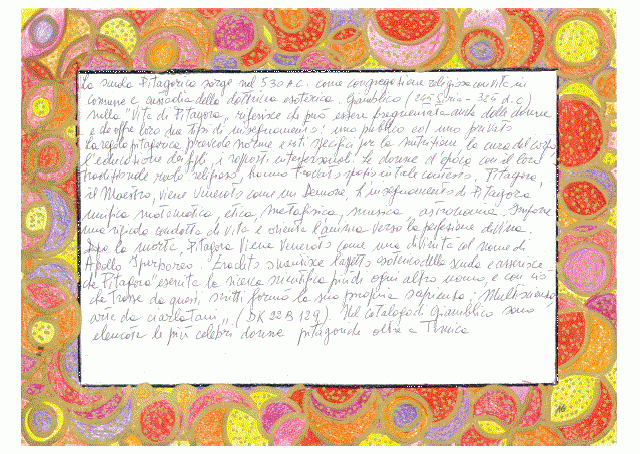 La Scuola Pitagorica sorge nel 530 A.C. come congregazione religiosa con vita in
comune e custodia della dottrina esoterica. Giamblico (245 Siria - 325 d.C)
nella "Vita di Pitagora" riferisce che può essere frequentata anche dalle donne
e da offre loro due tipi di insegnamento: uno pubblico ed uno privato
La regola pitagorica prevede norme e riti specifici per la nutrizione, la cura del corpo
l'educazione dei figli, i rapporti interpersonali. Le donne d'epoca con il loro
tradizionale ruolo religioso, hanno trovato spazio in tale contesto. Pitagora,
il Maestro, viene venerato come un Demone. L'insegnamento di Pitagora
unifica matematica, etica, metafisica, musica astronomia. Impone
una rigida condotta di vita e orienta l'anima verso la perfezione divina.
Dopo la morte, Pitagora viene venerato come una divinità col nome di
Apollo Iperboreo. Eraclito smentisce l'aspetto esoterico della scuola e asserisce
che Pitagora esercitò la ricerca scientifica più di ogni altro uomo, e con ciò
che trasse da questi scritti formò la sua propria sapienza: Multiscienza
arte da ciarlatani,, (DK 22 B 129) Nel Catalogo di Giamblico sono
elencate le più celebri donne pitagoriche oltre a Timica
16